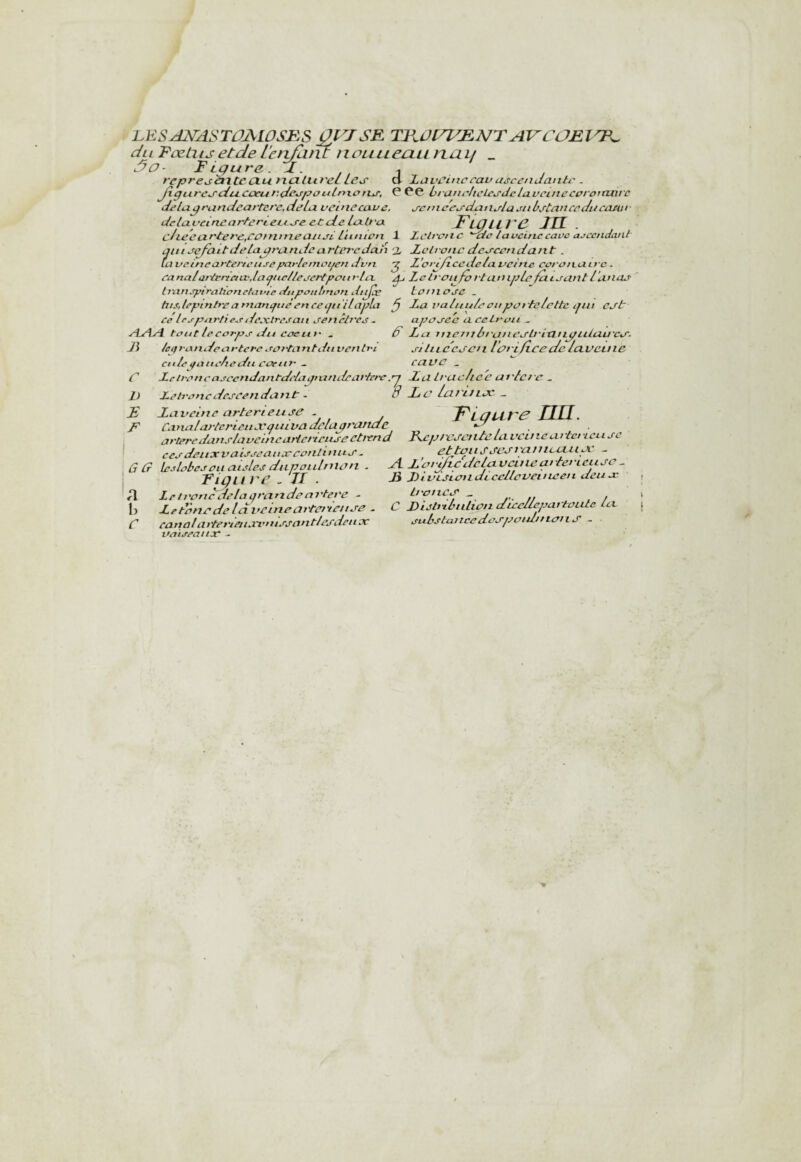 LES ANASTOMOSES QVI SE TROVVENT AV COEVR
du Fœtus et de l'enfant nouueau nay
30. Figure. I.
represēte au naturel les
figures du cœur, des poulmons,
de la grande artere, de la veine caue,
de la veine arterieuse et de la tra
chée artere, comme ausi l'union
qui se fait de la grande artere dan
la veine arterieuse par le moyen d'vn
canal arterieux, laquelle sert pour la
transpiration et la vie du poulmon du fœ
tus, le pintre a manqué en ce qu'il a pla
cé les parties dextres au senêtres.
AAA tout le corps du cœur
B la grande artere sortant du ventri
cule gauche du cœur
C Le tronc ascendant de la grande artere
D Le tronc descendant
E La veine arterieuse
F Canal arterieux qui va de la grande
artere dans la veine arterieuse et rend
ces deux vaisseaux continus.
G G les lobes ou aisles du poulmon.
Figure. II.
A Le tronc de la grande artere
b Le tronc de la veine arterieuse
C canal arterieux vnissant les deux
vaiseaux
d La veine cav ascendante.
e e e branchetes de la veine coronaire
semées dans la substance du cœur
Figure III.
1 Le tronc de la veine caue ascendant
2 Le tronc descendant.
3 L'orifice de la veine coronaire.
4 Le trou fort ample faisant l'anas
tomose
5 La valuule ou portelette qui est
aposée a ce trou
6 La membrane striangulaires.
situées en l'orifice de la veine
caue
7 La trachée artere
8 Le larinx
Figure IIII.
Represente la veine arterieuse
et tous ses rameaux
A L'orifice de la veine arterieuse
B Division d'icelle veine en deux
troncs
C Distribution d'icelle par toute la
substance des poulmons